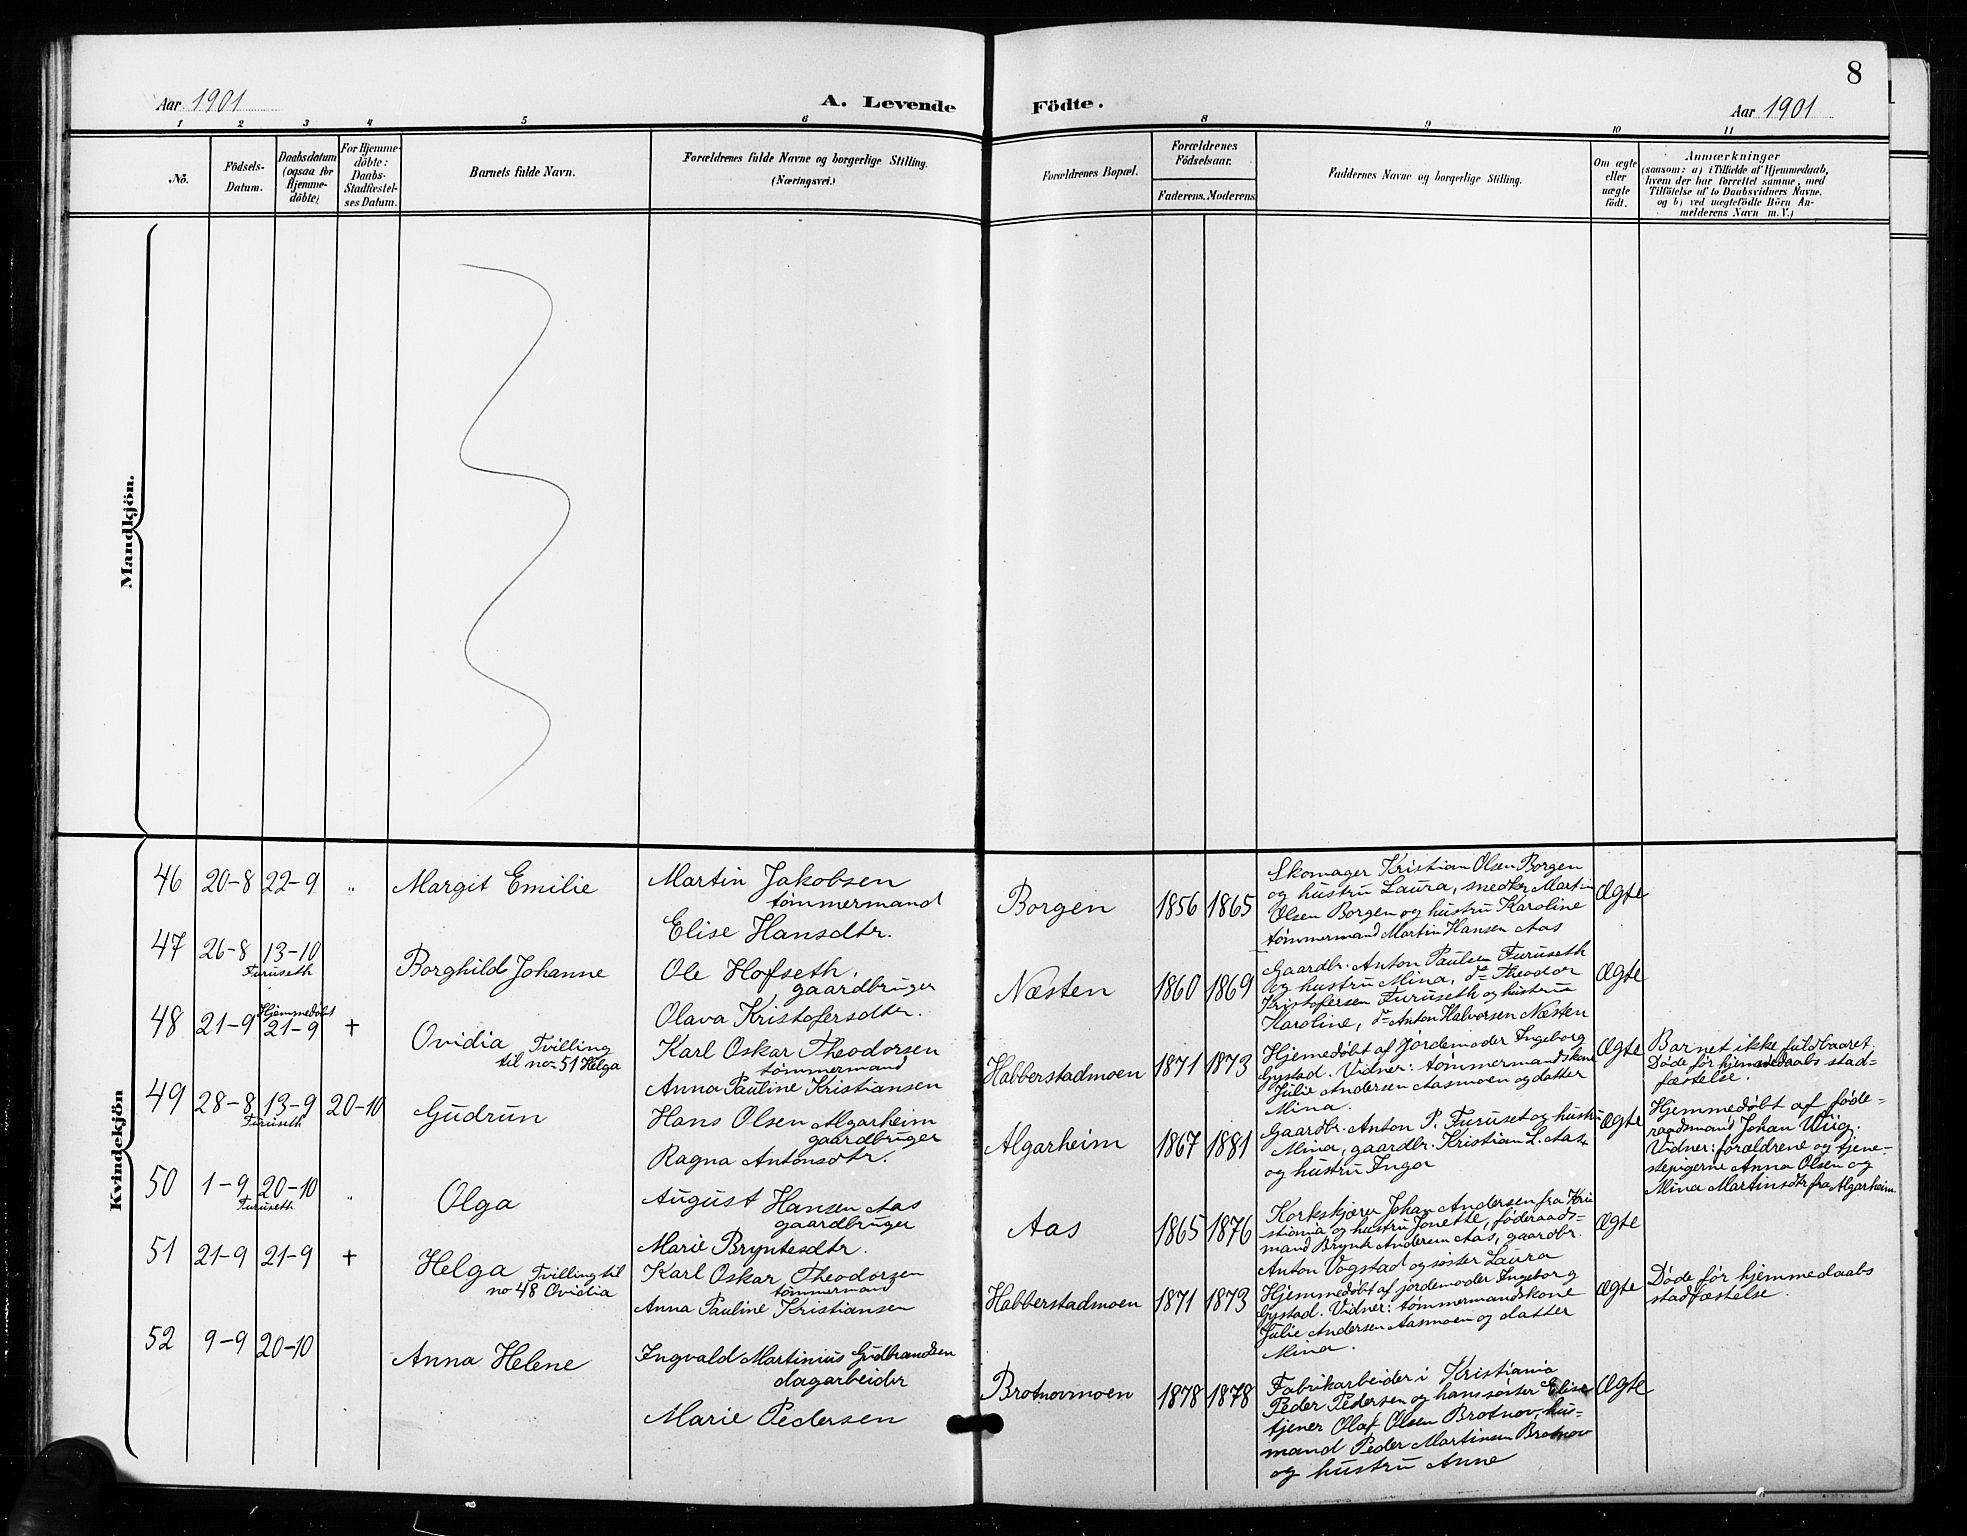 8
Aar 1901
A. Levende
Födte.
Aar 1901
1 2 3 4 5 6 8 9 10 11
No.
Födsels-
Datum.
Daabsdatum
(ogsaa for
Hjemme-
döbte)
For Hjemme-
döbte:
Daabs-
Stadfæstel-
ses Datum.
Barnets fulde Navn.
Forældrenes fulde Navne og borgerlige Stilling.
(Næringsvei.)
Forældrenes Bopæl.
Forældrenes
Födselsaar.
Faderens. Moderens.
Faddernes Navne og borgerlige Stilling.
Om ægte
eller
uægte
födt.
Anmærkninger
(saasom: a) i Tilfælde af Hjemmedaab,
hvem der har forrettet samme, med
Tilföielse af to Daabsvidners Navne.
og b) ved uægtefödte Börn An-
melderens Navn m. V.)
Mandkjön.
Kvindekjön
46 20-8 22-9 "
Margit Emilie
Martin Jakobsen
tømmermand
Elise Hansdtr.
Borgen
1856 1865
Skomager Kristian Olsen Borgen
og hustru Laura, snedker Martin
Olsen Borgen og hustru Karoline
tømmermand Martin Hansen Aas
Ægte
47 26-8 13-10
Furuseth
Borghild Johanne
Ole Hofseth.
gaardbruger
Olava Kristofersdtr.
Næsten
1860 1869
Gaardbr. Anton Paulsen Furuseth
og hustru Mina, do Theodor
Kristofersen Furuseth og hustru
Karoline, do Anton Halvorsen Næsten
Ægte
48 21-9 Hjemmedøbt
21-9 +
Ovidia Tvilling
til no 51 Helga
Karl Oskar Theodorsen
tømmermand
Anna Pauline Kristiansen
Habberstadmoen
1871 1873
Hjemedøbt af Jordemoder Ingeborg
Gystad. Vidner: tømmermandskone
Julie Andersen Aasmoen og datter
Mina.
Ægte
Barnet ikke fuldbaaret.
Døde før hjemmedaabs stad-
fæstelse.
49 28-8 13-9 20-10
Furuseth
Gudrun
Hans Olsen Algarheim
gaardbruger
Ragna Antonsdtr.
Algarheim
1867 1881
Gaardbr. Anton P. Furuset og hustru
Mina, gaardbr. Kristian L. Aas
og hustru Inga
Ægte
Hjemmedøbt af føde-
raadsmand Johan Wiig.
Vidner: forældrene og tjene-
stepigerne Anna Olsen og
Mina Martinsdtr fra Algarheim.
50 1-9 20-10 "
Furuseth
Olga
August Hansen Aas
gaardbruger
Marie Bryntesdtr.
Aas
1865 1876
Korkskjærer Johan Andersen fra Kri
stiania og hustru Jonette, føderaads-
mand Brynte Andersen Aas, gaardbr.
Anton Vogstad og søster Laura
Ægte
51 21-9 21-9 +
Helga Tvilling til
no 48 Ovidia
Karl Oskar Theodorsen
tømmermand
Anna Pauline Kristiansen
Habberstadmoen
1871 1873
Hjemmedøbt af jordemoder Ingeborg
Gystad. Vidner: tømmermandskone
Julie Andersen Aasmoen og datter
Mina.
Ægte
Døde før hjemmedaabs
stadfæstelse.
52 9-9 20-10
Anna Helene
Ingvald Martinius Gudbrandsen
dagarbeider
Marie Pedersen
Brotnovmoen
1878 1878
Fabrikarbeider i Kristiania
Peder Pedersen og hans søster Elise
tjener Olaf Olsen Brotnov, hus-
mand Peder Martinsen Brotnov
og hustru Anne
Ægte